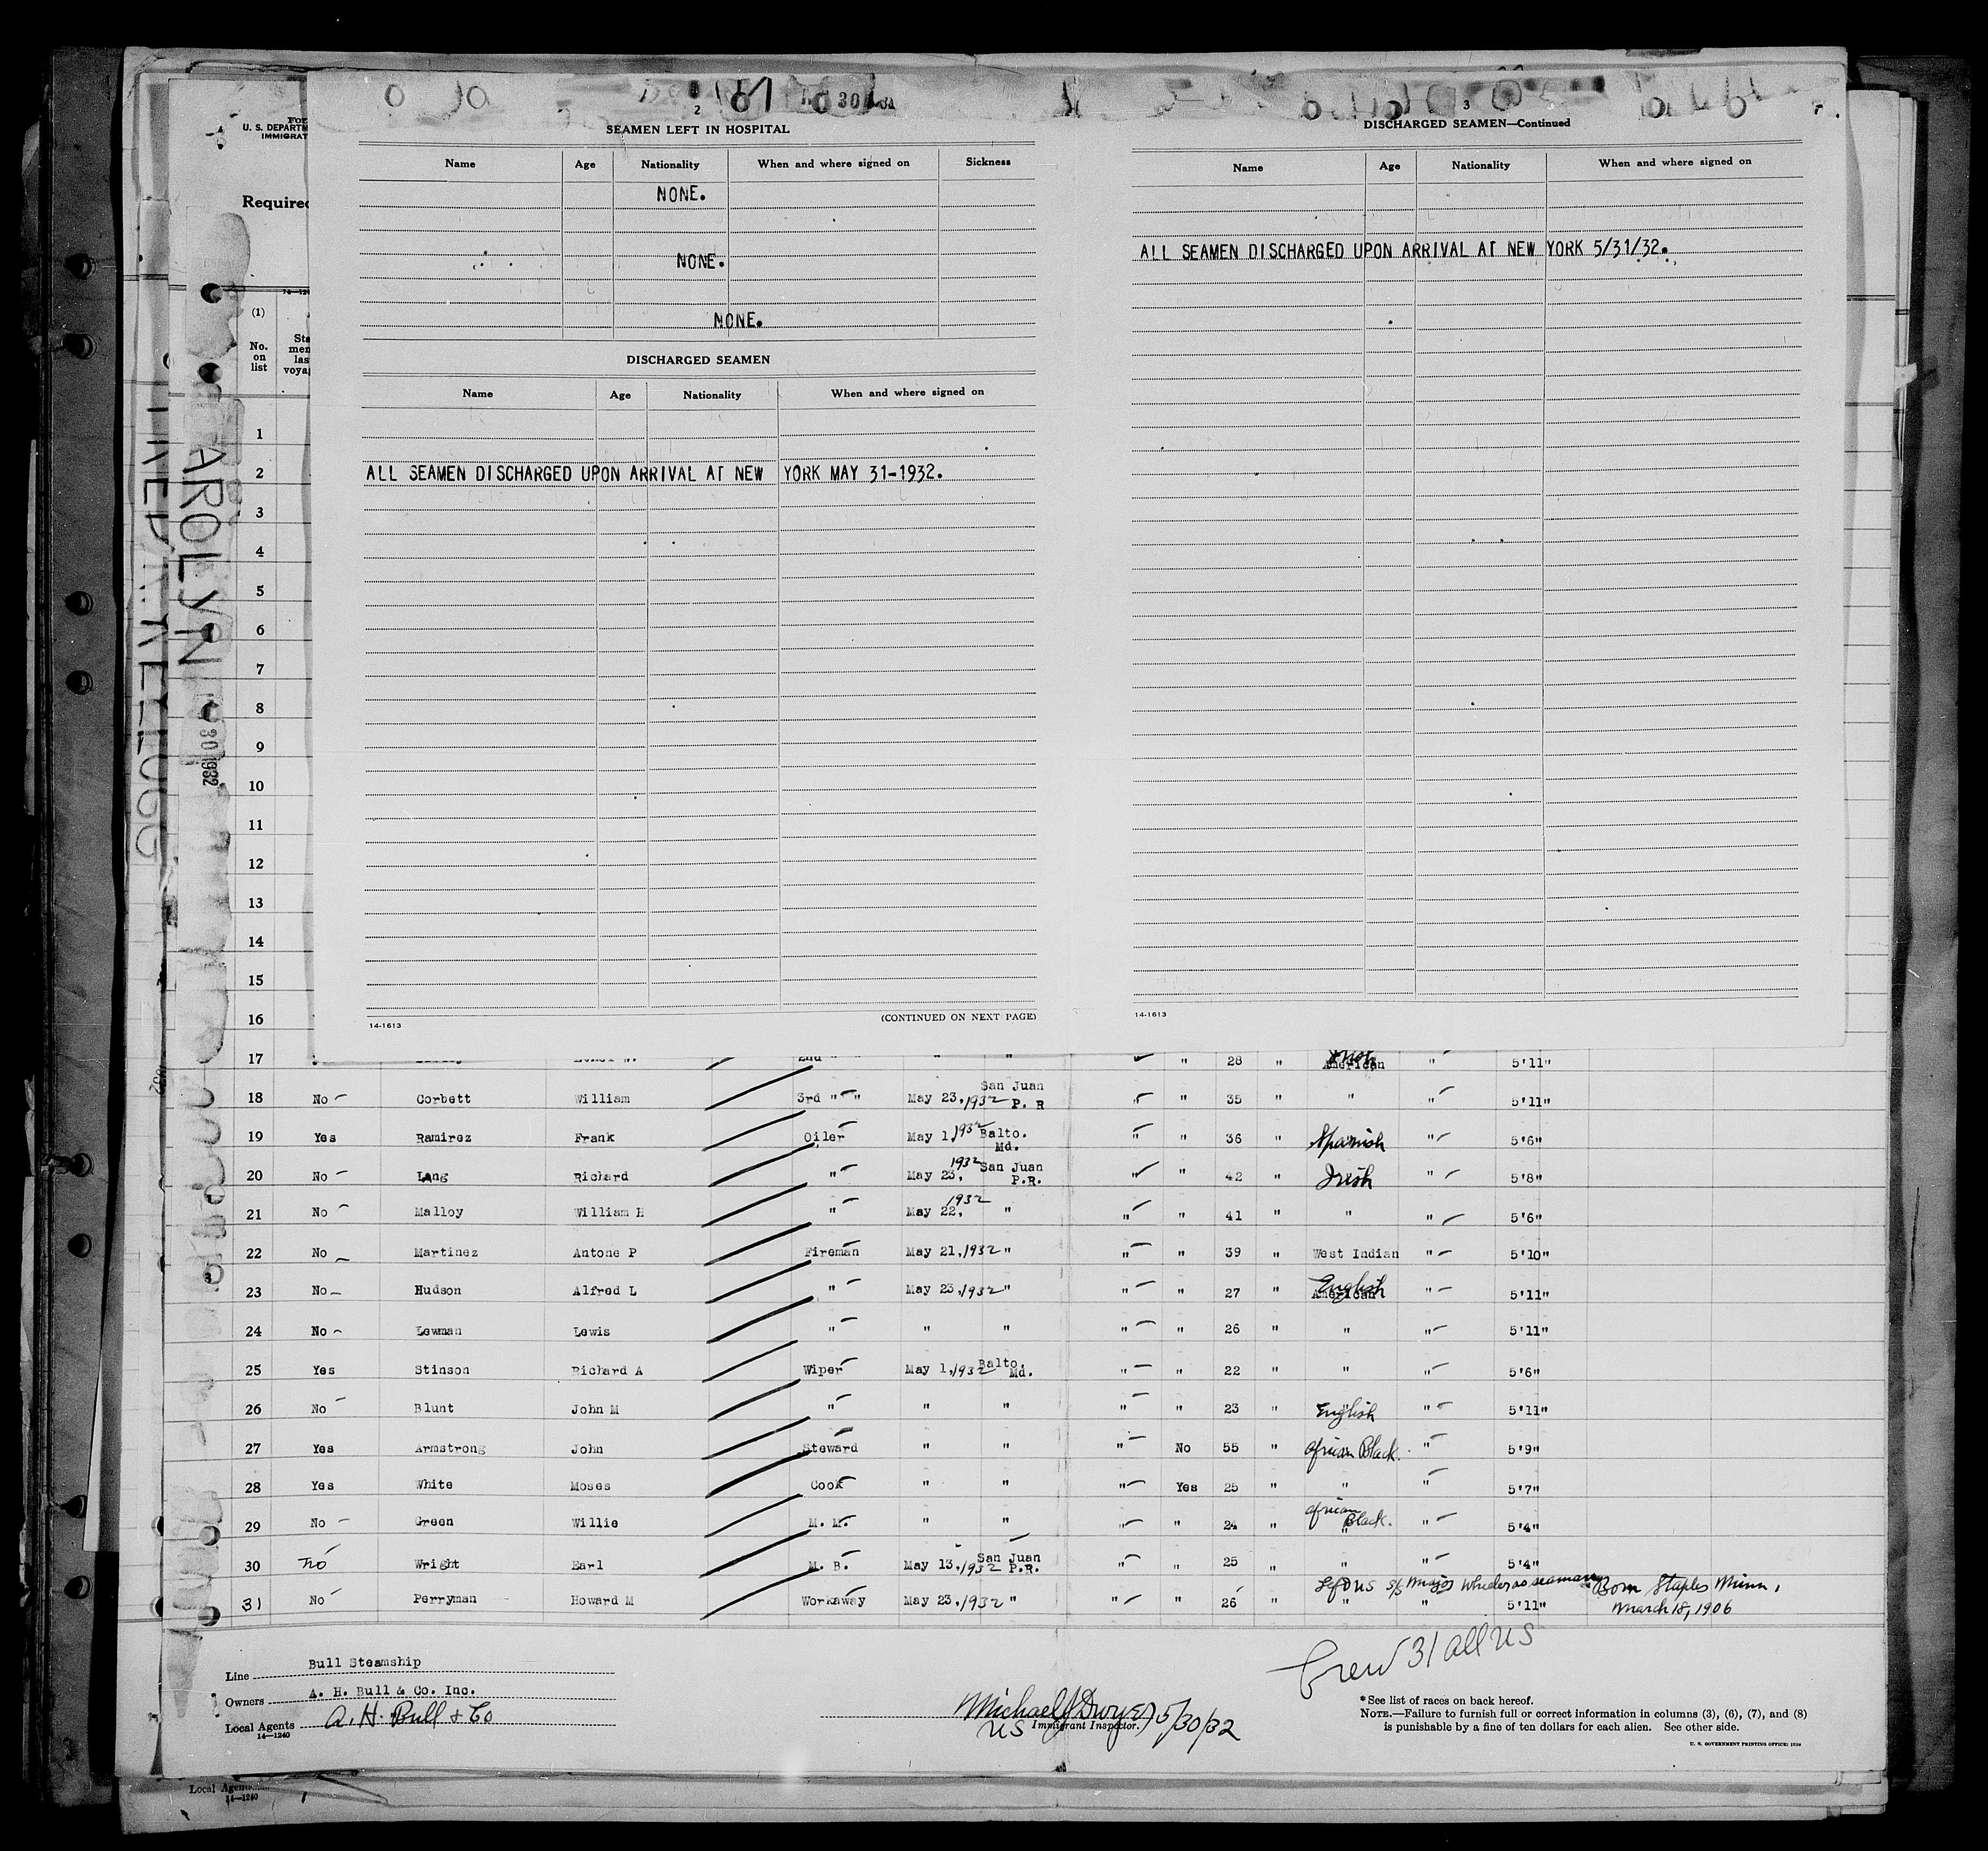 2
SEAMEN LEFT IN HOSPITAL
Name Age Nationality When and where signed on Sickness
NONE.
NONE.
NONE.
DISCHARGED SEAMEN
Name Age Nationality When and where signed on
ALL SEAMEN DISCHARGED UPON ARRIVAL AT NEW YORK MAY 31-1932.
14-1613 (CONTINUED ON NEXT PAGE)
3
DISCHARGED SEAMEN—Continued
Name Age Nationality When and where signed on
ALL SEAMEN DISCHARGED UPON ARRIVAL AT NEW YORK 5/31/32.
14-1613
U. S. DEPARTM
IMMIGRAT
Required
(1)
No. on list
AROLYN
30 1932
1
2
3
4
5
6
7
8
9
10
11
12
13
14
15
16
17 2nd " " " " " 28 " American " 5'11"
18 No Corbett William 3rd " " May 23, 1932 San Juan P. R " " 35 " " " 5'11"
19 Yes Ramirez Frank Oiler May 1, 1932 Balto. Md. " " 36 " Spanish " 5'6"
20 No Lang Richard " May 23, 1932 San Juan P.R. " " 42 " Irish " 5'8"
21 No Malloy William H " May 22, 1932 " " " 41 " " " 5'6"
22 No Martinez Antone P Fireman May 21, 1932 " " " 39 " West Indian " 5'10"
23 No Hudson Alfred L " May 23, 1932 " " " 27 " English American " 5'11"
24 No Lewman Lewis " " " " " 26 " " " 5'11"
25 Yes Stinson Richard A Wiper May 1, 1932 Balto. Md. " " 22 " " " 5'6"
26 No Blunt John M " " " " " 23 " English " 5'11"
27 Yes Armstrong John Steward " " " No 55 " African Black. " 5'9"
28 Yes White Moses Cook " " " Yes 25 " " " 5'7"
29 No Green Willie M. M. " " " " 24 " African Black. " " 5'4"
30 No Wright Earl M. B. May 13, 1932 San Juan P.R. " " 25 " " " 5'4"
31 No Perryman Howard M Workaway May 23, 1932 " " " 26 " " " 5'11"
Left US S/S Major Wheeler as seaman Born Staples Minn, March 18, 1906
Crew 31 all US
Line Bull Steamship
Owners A. H. Bull & Co. Inc.
Local Agents A. H. Bull & Co
14—1240
Michael J Dwyer 5/30/32
US Immigrant Inspector.
*See list of races on back hereof.
NOTE.—Failure to furnish full or correct information in columns (3), (6), (7), and (8)
is punishable by a fine of ten dollars for each alien. See other side.
Local Agents
14—1240